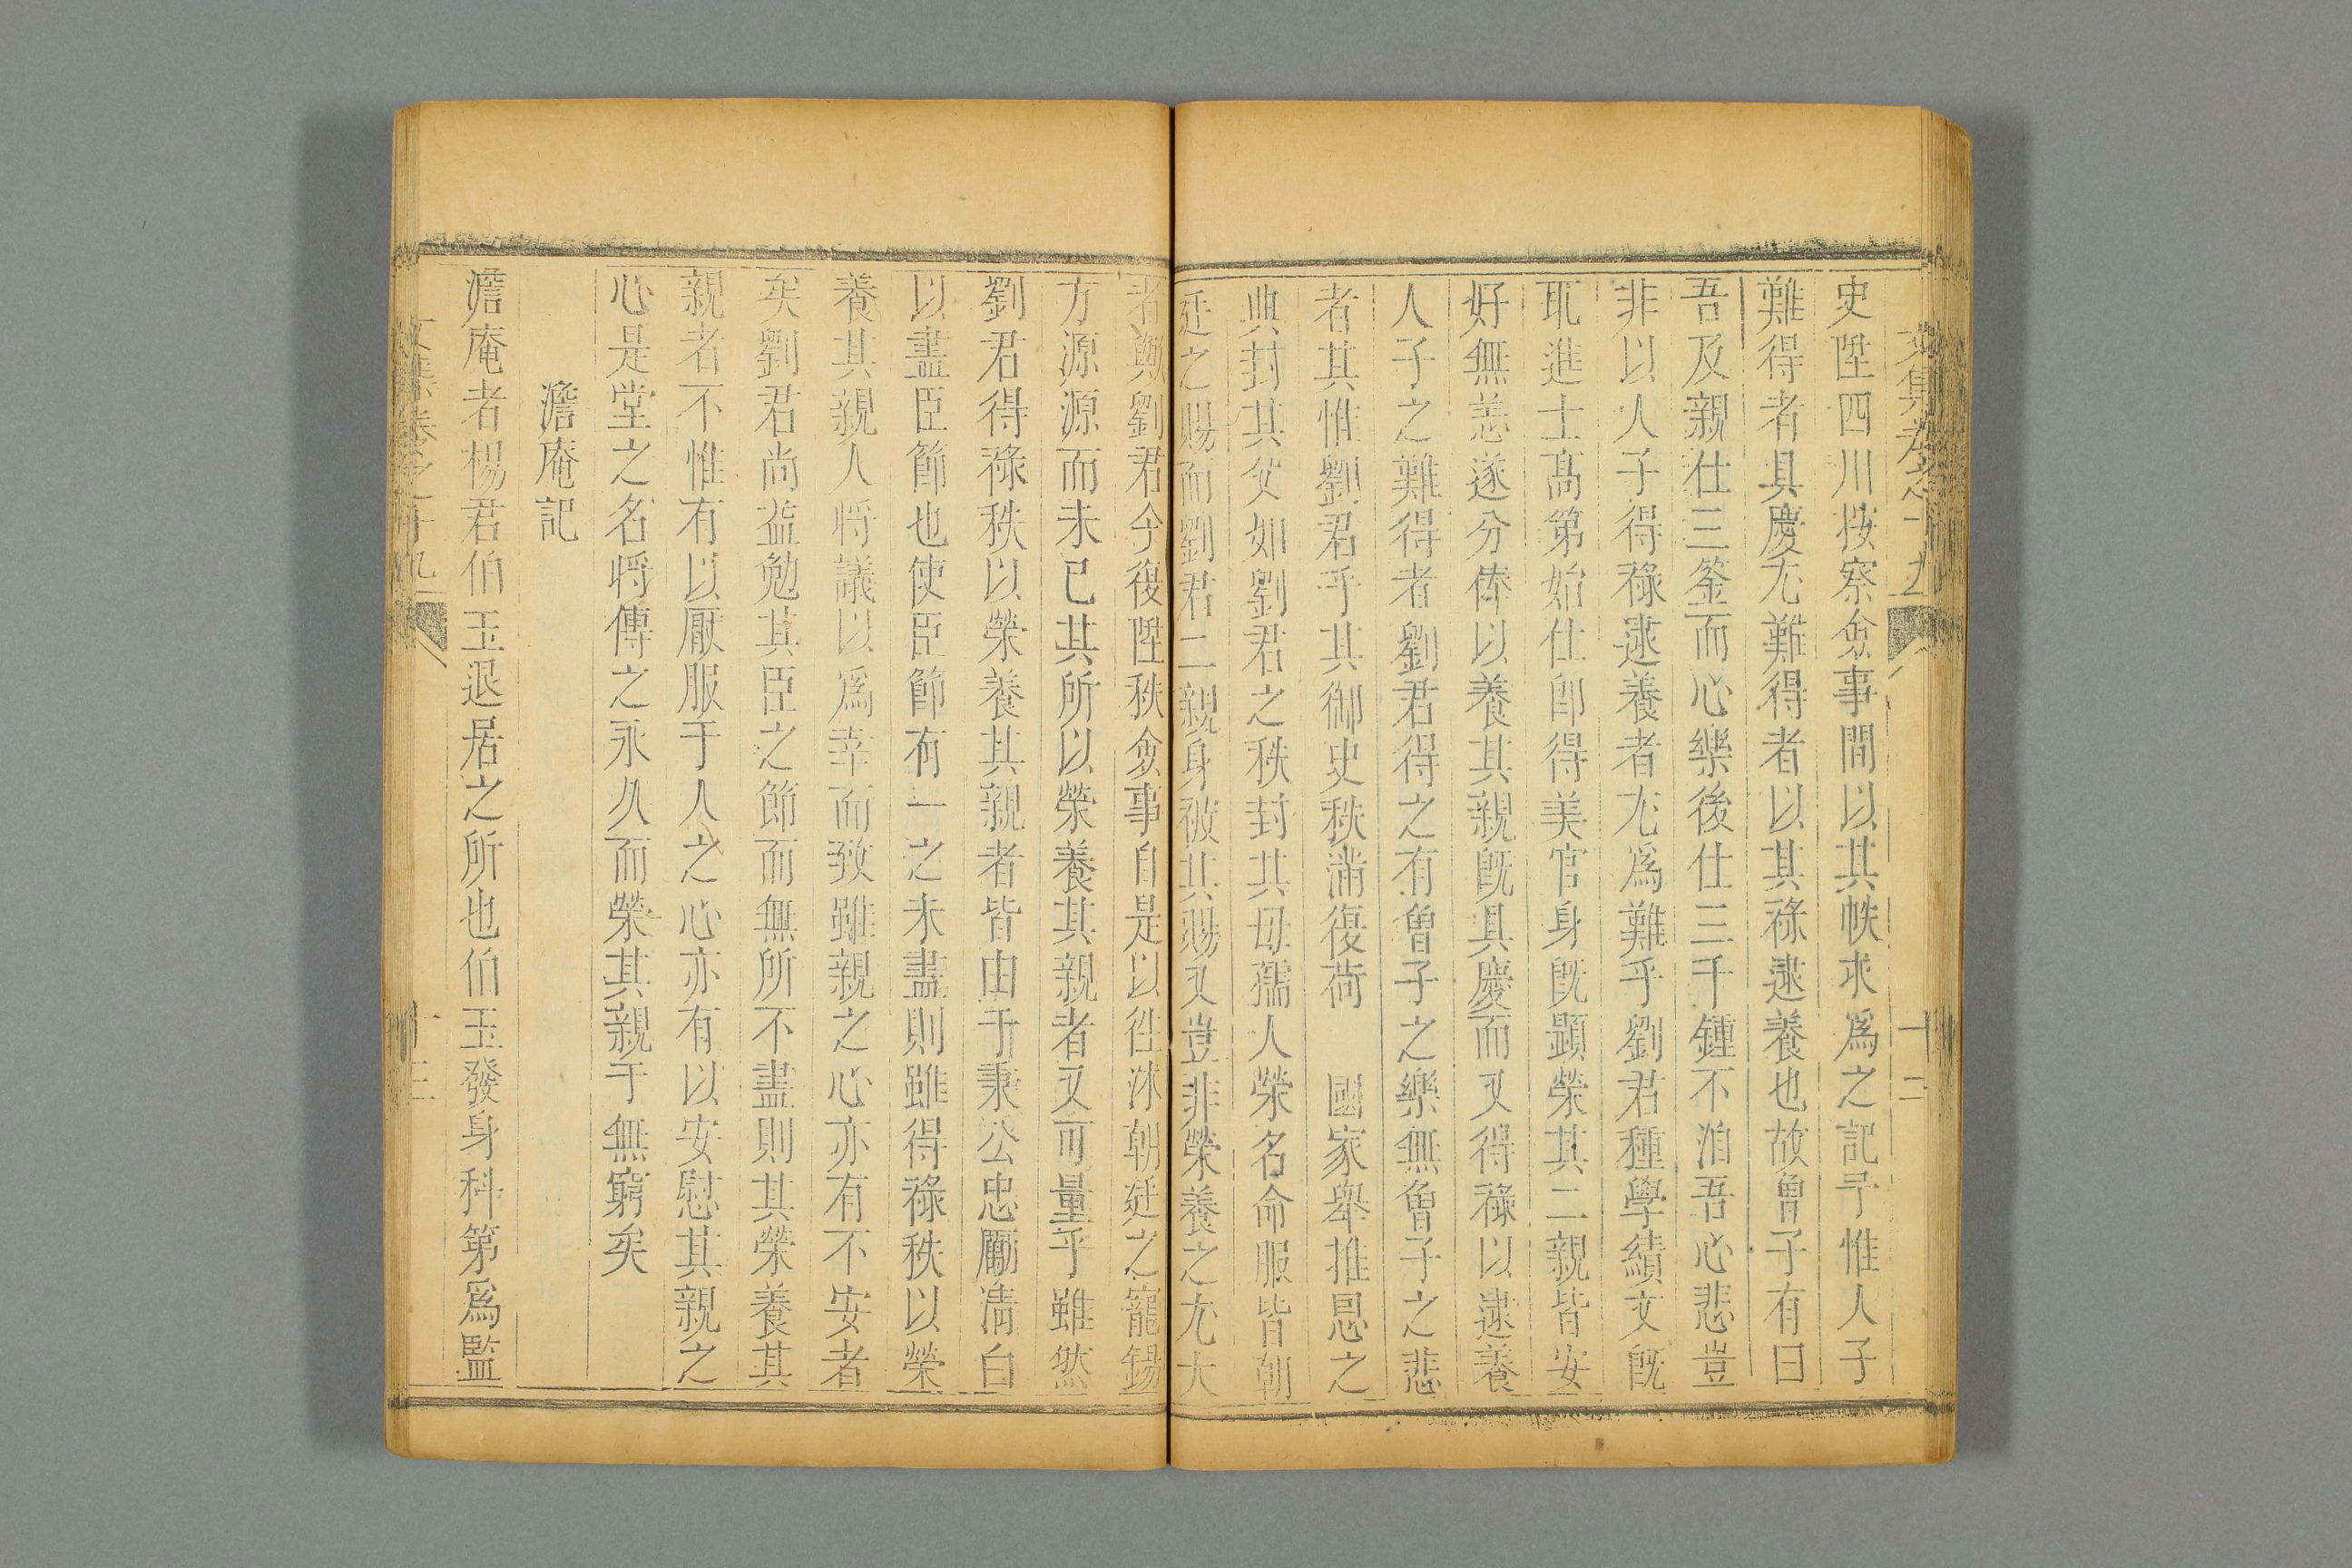 文集卷之十九
十二
史陞四川按察僉事間以其帙求爲之記予惟人子
難得者具慶尤難得者以其祿逮養也故曾子有曰
吾及親仕三釜而心樂後仕三千鍾不洎吾心悲豈
非以人子得祿逮養者尤爲難乎劉君種學績文旣
取進士高第始仕卽得美官身旣顕榮其二親皆安
好無恙遂分俸以養其親旣具慶而又得祿以逮養
人子之難得者劉君得之有曾子之樂無曾子之悲
者其惟劉君乎其御史秩滿復荷 國家舉推恩之
典封其父如劉君之秩封其母孺人榮名命服皆朝
廷之賜而劉君二親身被其賜又豈非榮養之尤大
者歟劉君今復陞秩僉事自是以徃沐朝廷之寵錫
方源源而未已其所以榮養其親者又可量乎雖然
劉君得祿秩以榮養其親者皆由于秉公忠勵清白
以盡臣節也使臣節有一之未盡則雖得祿秩以榮
養其親人将議以爲幸而致雖親之心亦有不安者
矣劉君尚益勉其臣之節而無所不盡則其榮養其
親者不惟有以厭服于人之心亦有以安慰其親之
心是堂之名将傳之永久而榮其親于無窮矣
澹庵記
澹庵者楊君伯玉退居之所也伯玉發身科第爲監
文集卷之十九
十三